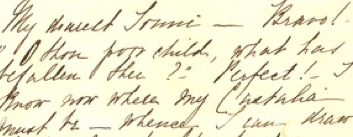 My dearest Tonni — Bravo! -
" O thou poor child, what has
befallen thee ?" Perfect! - I
know now where my Castalia
must be — whence I can draw